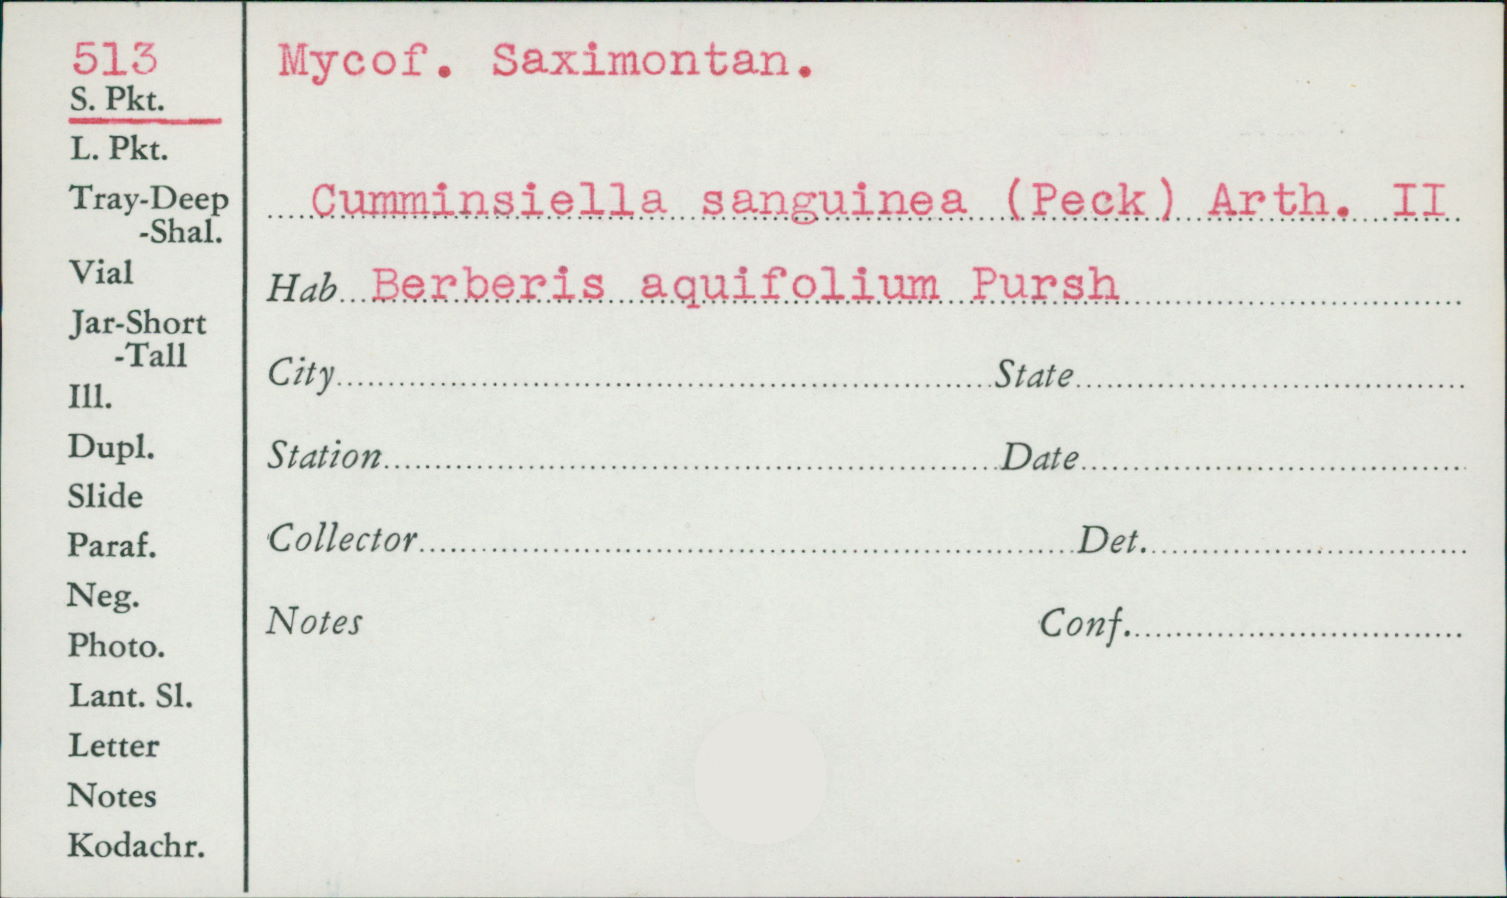 513
S. Pkt.
L. Pkt.
Tray-Deep
-Shal.
Vial
Jar-Short
-Tall
Ill.
Dupl.
Slide
Paraf.
Neg.
Photo.
Lant. Sl.
Letter
Notes
Kodachr.
Mycof. Saximontan.
Cumminsiella sanguinea (Peck) Arth. II
Hab Berberis aquifolium Pursh
City State
Station Date
Collector Det.
Notes Conf.